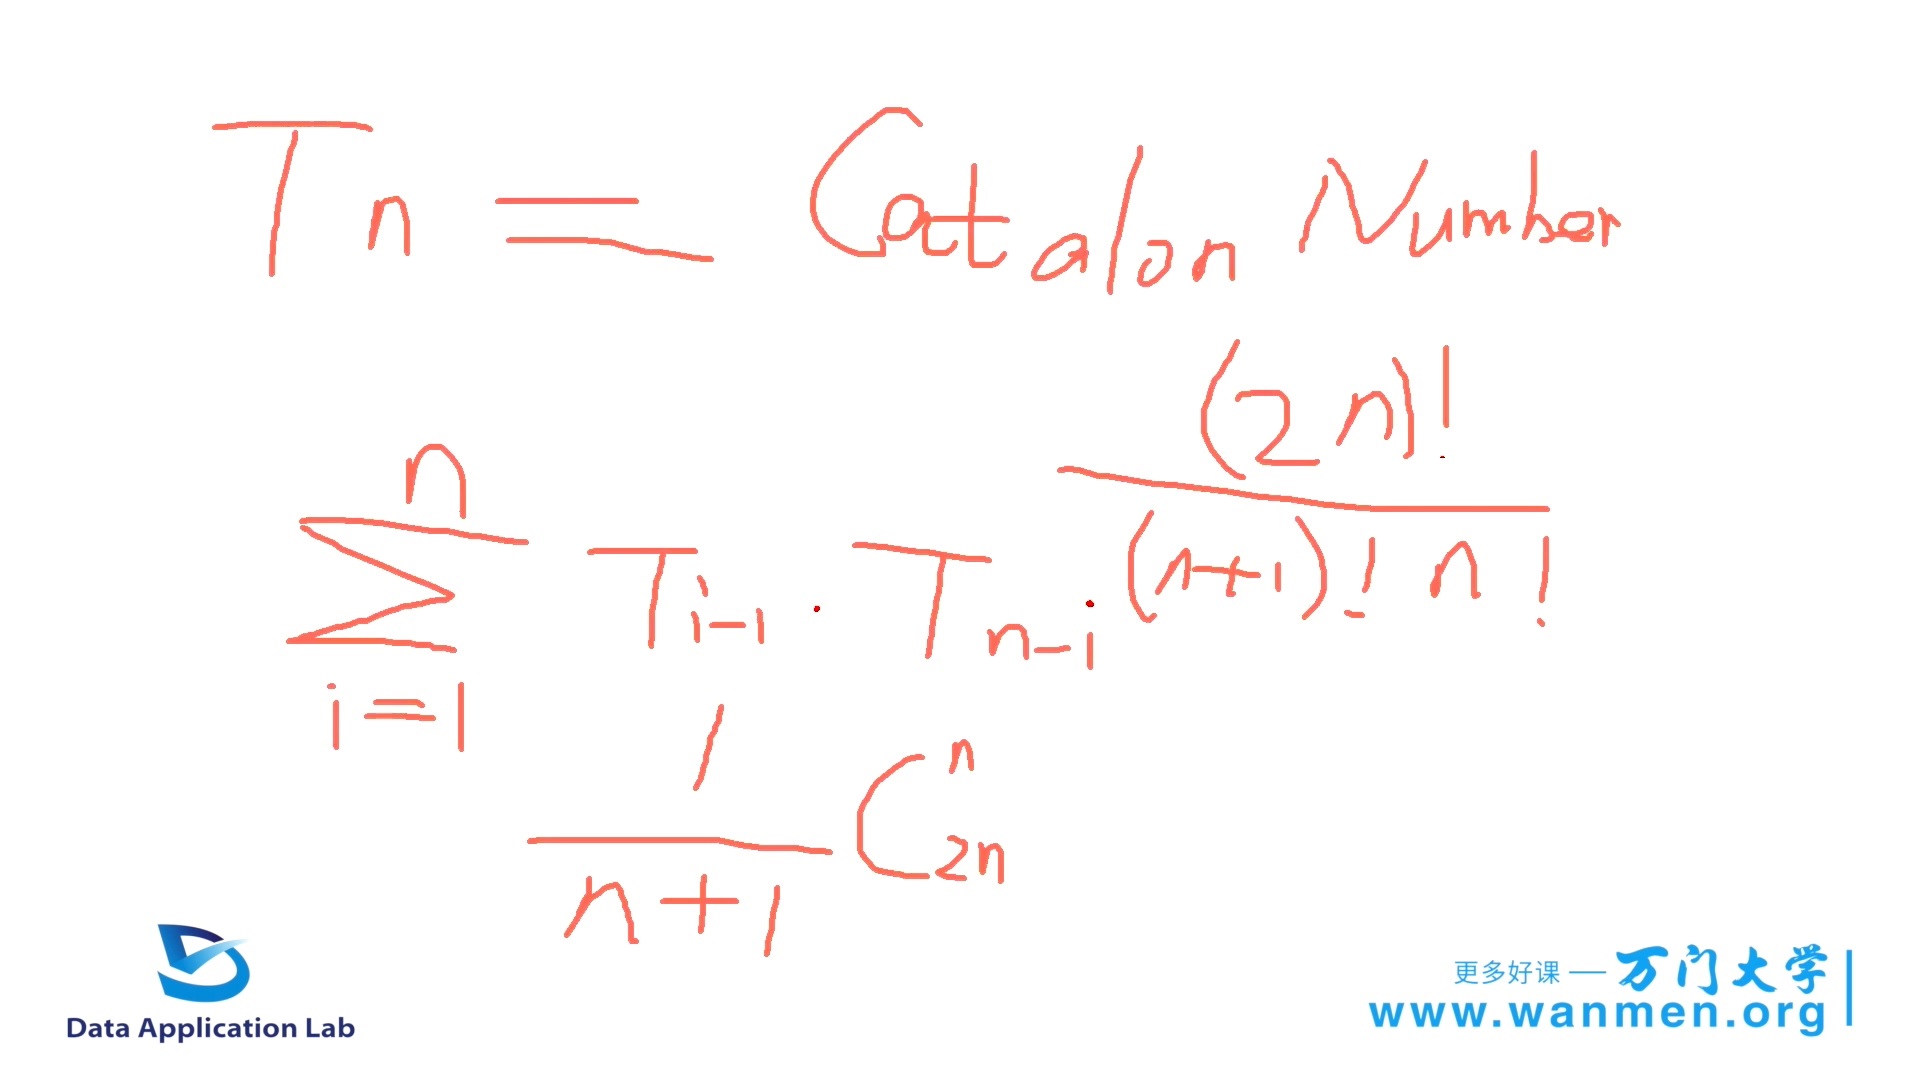 Tn = Catalon Number
(2n)!
n
Σ Ti-1 · Tn-i (n+1)! n!
i=1
1
n
C2n
n+1
Data Application Lab
更多好课 — 万门大学
www.wanmen.org